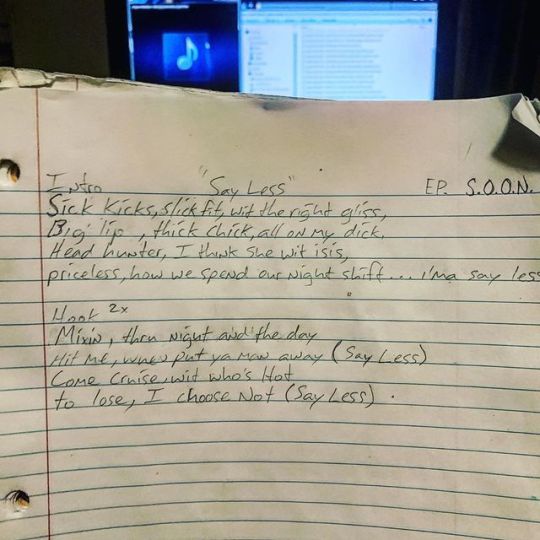 "Say Less"
Intro EP. S.O.O.N.
Sick Kicks, slick fit, wit the right gliss,
Big lip, thick chick, all on my dick,
Head hunter, I think she wit isis,
priceless, how we spend our night shift... i'ma say less
Hook 2x
Mixin, thru night and the day
Hit me, when u put ya man away (Say Less)
Come Cruise, wit who's Hot
to lose, I choose Not (Say Less).